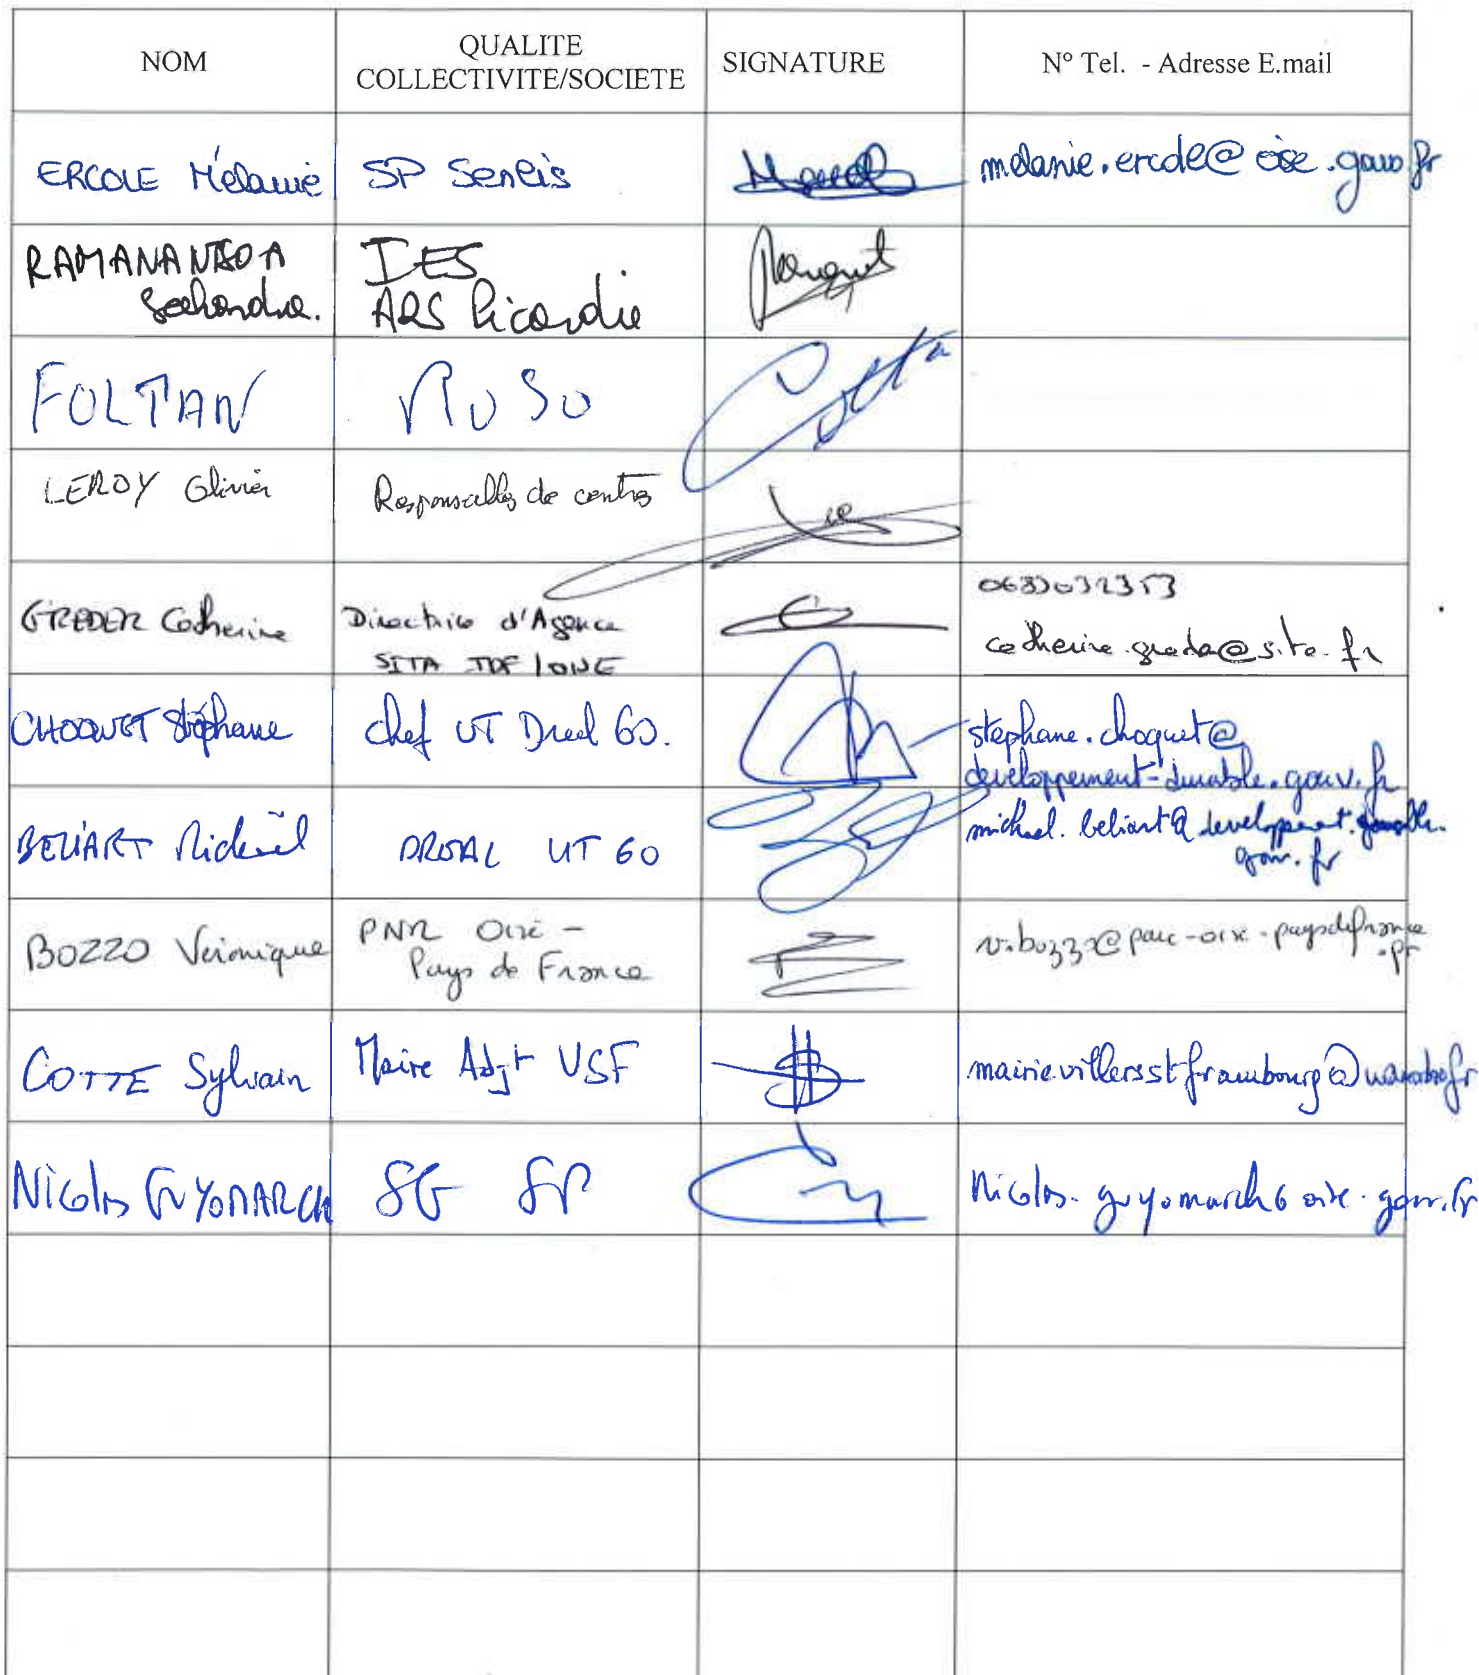 NOM
QUALITE
COLLECTIVITE/SOCIETE
SIGNATURE
N° Tel. - Adresse E.mail
ERCOLE Mélanie
SP Senlis
melanie.ercole@oise.gouv.fr
RAMANANTSOA
IES
ARS Picardie
FOLTAN
ROSO
LEROY Olivier
Responsable de centre
GREDER Catherine
Directrice d'Agence
SITA IDF
catherine.greder@sita.fr
CHOQUET Stéphane
chef UT Dreal 60.
stephane.choquet@
developpement-durable.gouv.fr
BELIART Mickaël
DREAL UT 60
michael.beliart@developpement.durable.
gouv.fr
BOZZO Véronique
PNR Oise -
Pays de France
v.bozzo@parc-oise-paysdefrance
.fr
COTTE Sylvain
Maire Adjt VSF
mairievillersstframbourg@wanadoo.fr
Nicolas GUYOMARCH
SG SP
Nicolas.guyomarch@oise.gouv.fr